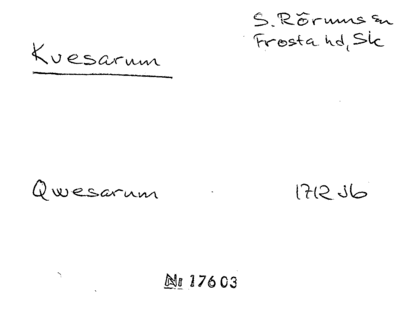 S. Rörums sn
Frosta hd, Sk
Kvesarum
Qwesarum 1712 Jb
№ 17603